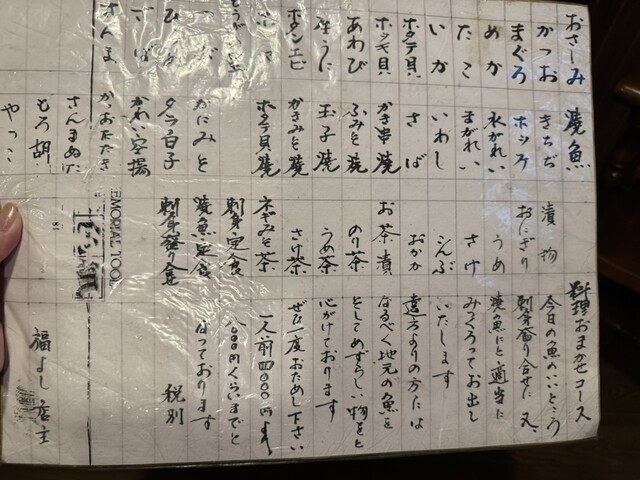 おさしみ
かつお
まぐろ
めか
たこ
いか
ホタテ貝
ホッキ貝
あわび
生うに
ボタンエビ
さば
さんま
焼魚
きちぢ
ホッケ
水がれい
まがれい
いわし
さば
かき串焼
ふみそ焼
玉子焼
かきみそ焼
ホタテ貝焼
かにみそ
タラ白子
かれい空揚
かつおたたき
さんまぬた
もろ胡
やっこ
漬物
おにぎり
うめ
さけ
こんぶ
おかか
お茶漬
のり茶
うめ茶
さけ茶
ネギみそ茶
刺身定食
焼魚定食
刺身盛り合せ
EMORIAL TOOL
料理おまかせコース
今日の魚のいいところ
刺身盛り合せに又、
焼魚にと適当に
みつくろってお出し
いたします
遠方よりの方には
なるべく地元の魚を
としてめずらしい物をと
心がけております
ぜひ一度おためし下さい
一人前
円くらいまでと
なっております
税別
福よし店主